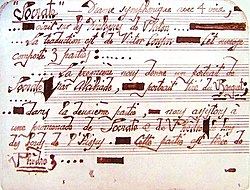 "Socrate" Drame symphonique avec 4 voix
dialogues de Platon
La traduction est de Victor Cousin Cet ouvrage
comporte 3 parties :
La première nous donne un portrait de
Socrate par Alcibiade portrait tiré du Banquet
dans la deuxième partie nous assistons à
une promenade de Socrate & de
les bords de l'Ilyssus Cette partie est tirée de
Phèdre